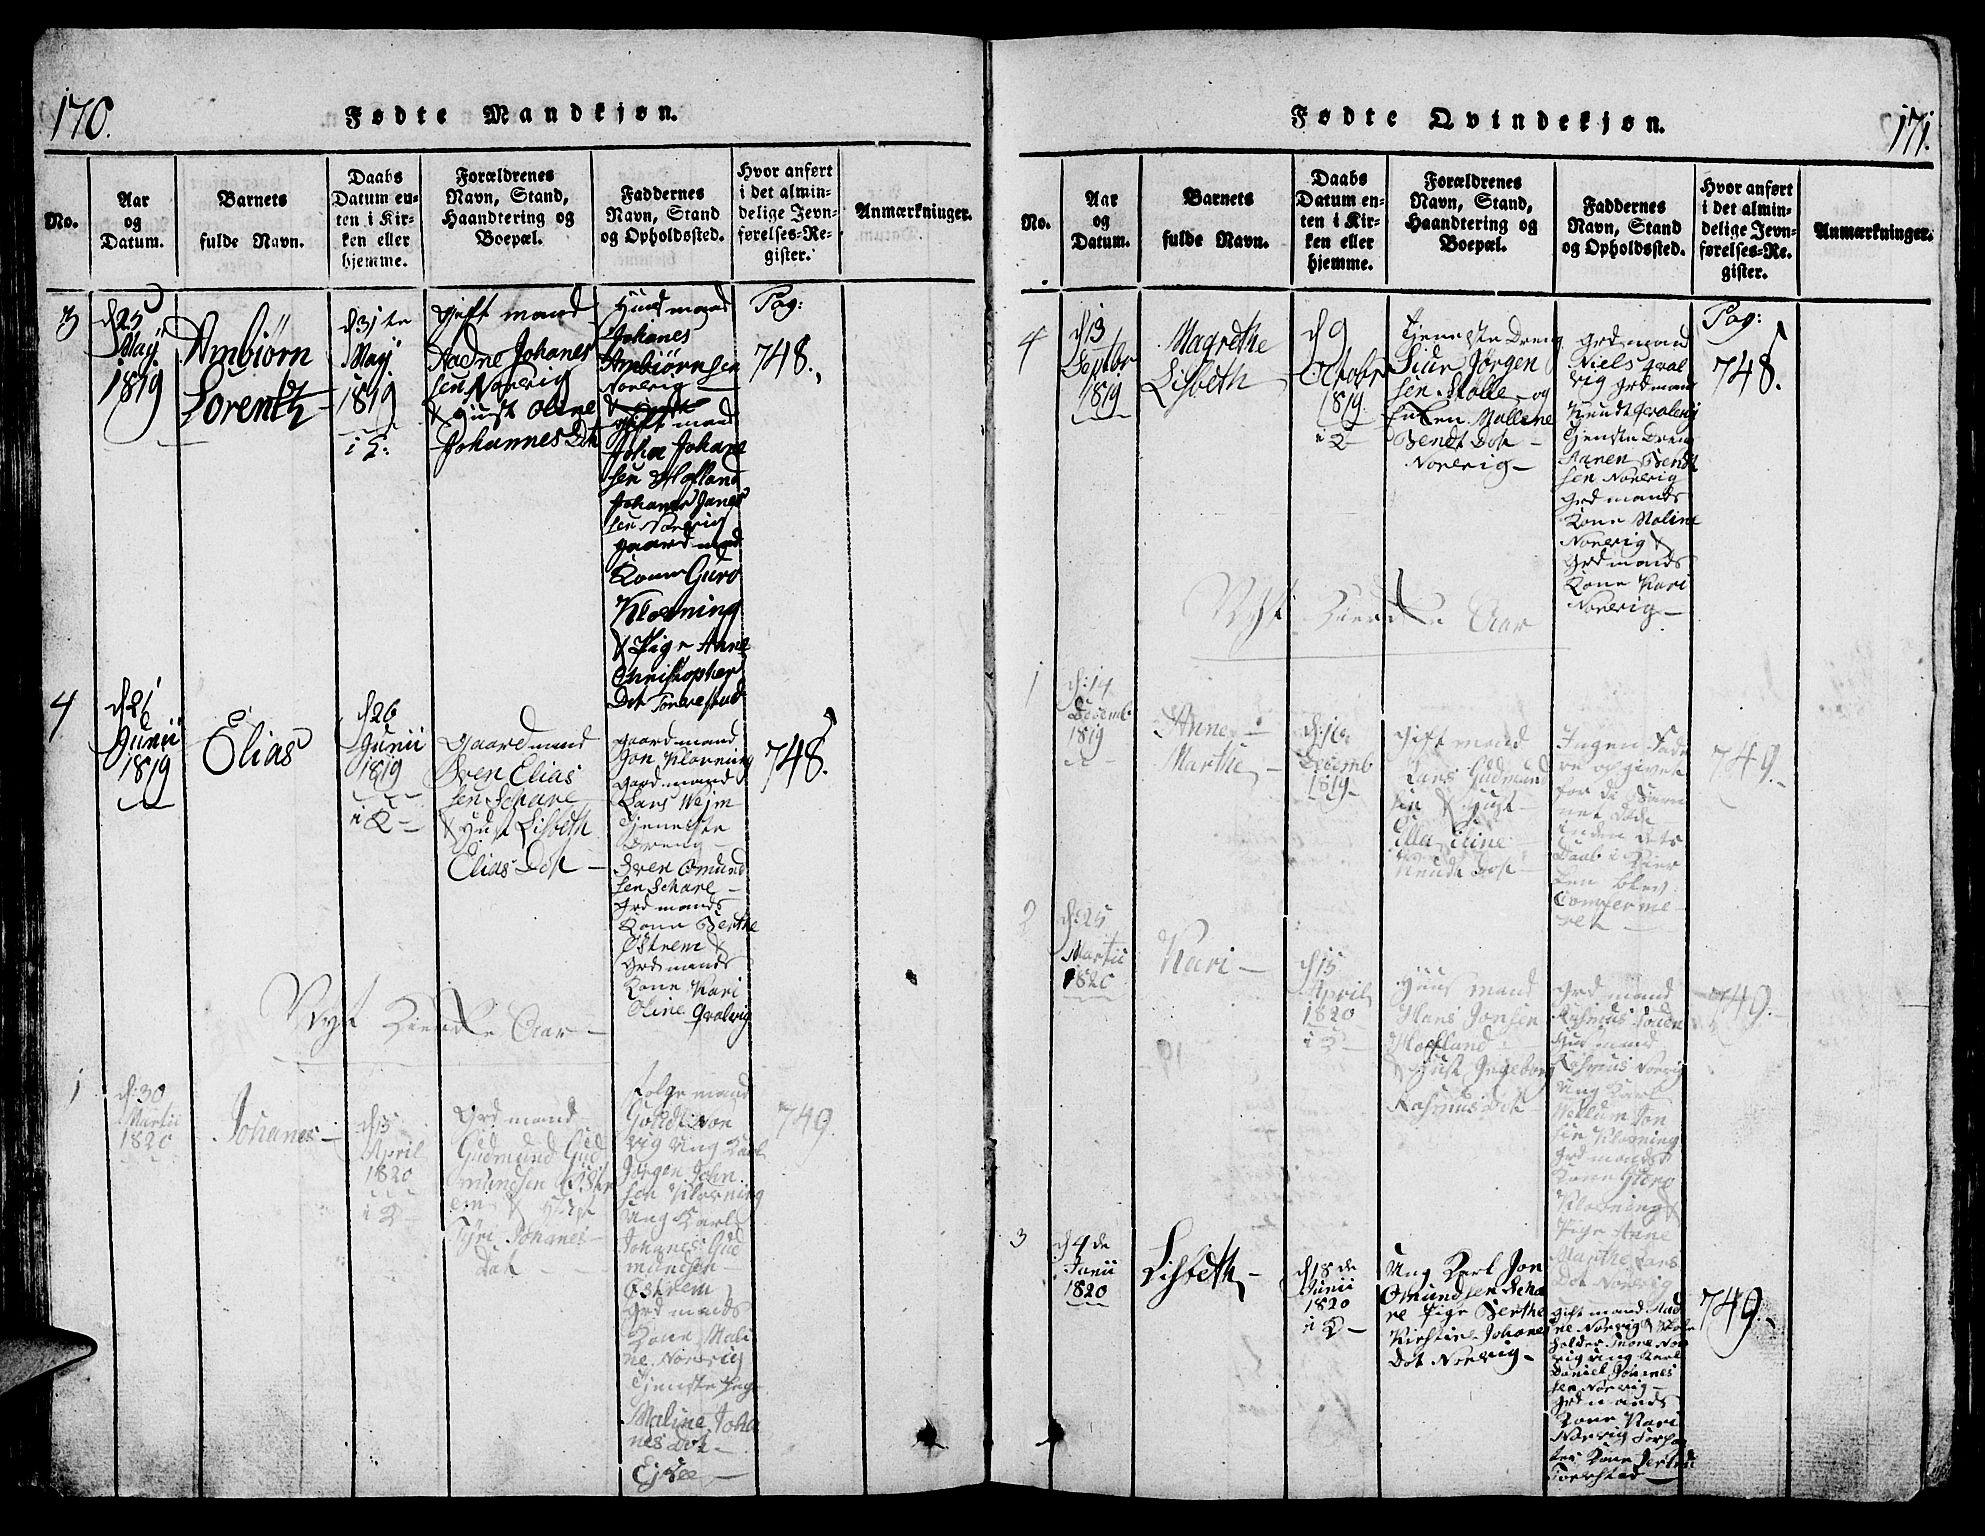 170.
Fødte Mandkjøn.
No.
Aar
og
Datum.
Barnets
fulde Navn.
Daabs
Datum en-
ten i Kir-
ken eller
hjemme.
Forældrenes
Navn, Stand,
Haandtering og
Boepæl.
Faddernes
Navn, Stand
og Opholdssted.
Hvor anført
i det almin-
delige Jevn-
førelses-Re-
gister.
Anmærkninger.
3
d 25
Maÿ
1819
Ambiørn
Lorentz
d 31te
Maÿ
1819
i K:
Gift mand
Aadne Johanes
sen Norvig
& Hust Oline
Johannes Dot
Huusmand
Johanes
Ambiørnsen
Norevig
Gift mand
Joha Johane
sen Hofland
Johanes
sen Norevig
gaard mands
Kone Guro
Klovning
& Pige Anne
Christopher
Dot
Pag:
748.
4
d 26
Junii
1819
Elias
d 26
Junii
1819
i K
Gaard mand
Sven Elias
sen Schare
& Hust Lisbeth
Elias Dot
gaard mand
Jon Klovning
Gard mand
Lars
Tieneste
Dreng
Sven Omund
sen Schare
Grd mands
Kone Berthe
Østrem &
Grd mands
Kone Kari
Oline Qvalvig
748.
Nyt Kierke Aar
1
d: 30
Martii
1820
Johanes
d 15
April
1820
i K
Grd mand
Gudmund Gud
mundsen Østr
em & Hust
Siri Johanes
Dot
Folge mand
Nor
vig Ung Karl
Jørgen John
sen Klovning
Ung Karl
Johanes Gud
mundsen
Østrem
Grd mands
Kone Mali
ne Norevig
Tjeneste Pige
Maline Joha
nes Dot
749.
171.
Fødte Qvindekjøn.
No.
Aar
og
Datum.
Barnets
fulde Navn.
Daabs
Datum en-
ten i Kir-
ken eller
hjemme.
Forældrenes
Navn, Stand,
Haandtering og
Boepæl.
Faddernes
Navn, Stand
og Opholdssted.
Hvor anført
i det almin-
delige Jevn-
førelses-Re-
gister.
Anmærkninger.
4
d 13
Septbr
1819
Magrethe
Lisbeth
d 9
Octobr
1819
i K
Tieneste Dreng
Siur Jørgen
sen Stolle og
Enken Mallene
Bendt Dot
Norevig
Grd mand
Niels Qval
vig Grd mand
Knudt Qvalevig
Tjenste Dreng
Aanen Bendt
sen Norevig
Grd mands
Kone Maline
Norevig &
Grd mands
Kone Kari
Norevig
Pag:
748.
Nyt Kierke Aar
1
d: 14
Decemb
1819
Anne
Marthe
d: 16
Decemb
1819
Gift mand
Lars Gudmund
sen & Hust
Ella Eline
Knudt Dot
Ingen Fade
re opgivet
for de Barn
net døde
inden dets
Daab i Kier
ken blev
Confirme
ret
749.
2
d: 25
Martii
1820
Kari
d 15
April
1820
i K
Huus mand
Hans Jonsen
Hofland
& Hust Ingeborg
Rasmus Dot
Grd mand
Rasmus
Huusmand
Rasmus Norevig
Ung Karl
Willum Jon
sen Klovning
Grd mands
Kone Guro
Klovning &
Pige Anne
Marthe Lars
Dot Norevig
749.
3
d 4de
Junii
1820
Lisbeth
d 18de
Junii
1820
i K
Ung Karl Jon
Omundsen Scha
re Pige Berthe
Kirstine Johanes
Dot Norevig
Gift mand Aad
ne Norevig &
Tore Nor
vig Ung Karl
Daniel Johanes
sen Norevig
Grd mands
Kone Kari
Norevig
749.